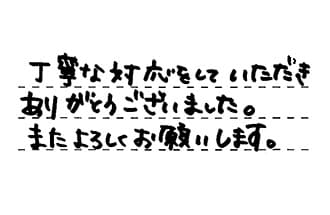 丁寧な対応をしていただき
ありがとうございました。
またよろしくお願いします。